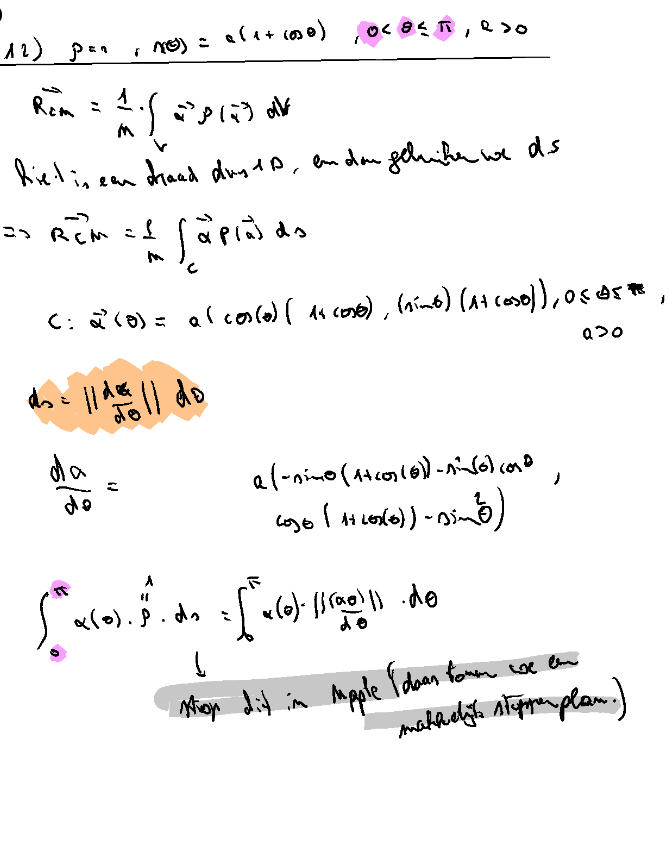 12) ρ=1 , r(θ) = a(1+cosθ) , 0<θ≤π, a>0
R⃗cm = 1/m · ∫_V α⃗ ρ(α⃗) dV
hier is een draad dus 1D, en dan gebruiken we ds
=> R⃗CM = 1/m ∫_C α⃗ ρ(α⃗) ds
C: α⃗(θ) = a(cos(θ)(1+cosθ), (sinθ)(1+cosθ)), 0≤θ≤π,
a>0
ds = ||dα/dθ|| dθ
dα/dθ = a(-sinθ(1+cos(θ))-sin(θ)cosθ ,
cosθ(1+cos(θ))-sin²θ)
1
∫_0^π α(θ)·ρ·ds = ∫_0^π α(θ)·||(αθ)/dθ||·dθ
↓
stop dit in Maple (daar tonen we een
makkelijk stappenplan.)